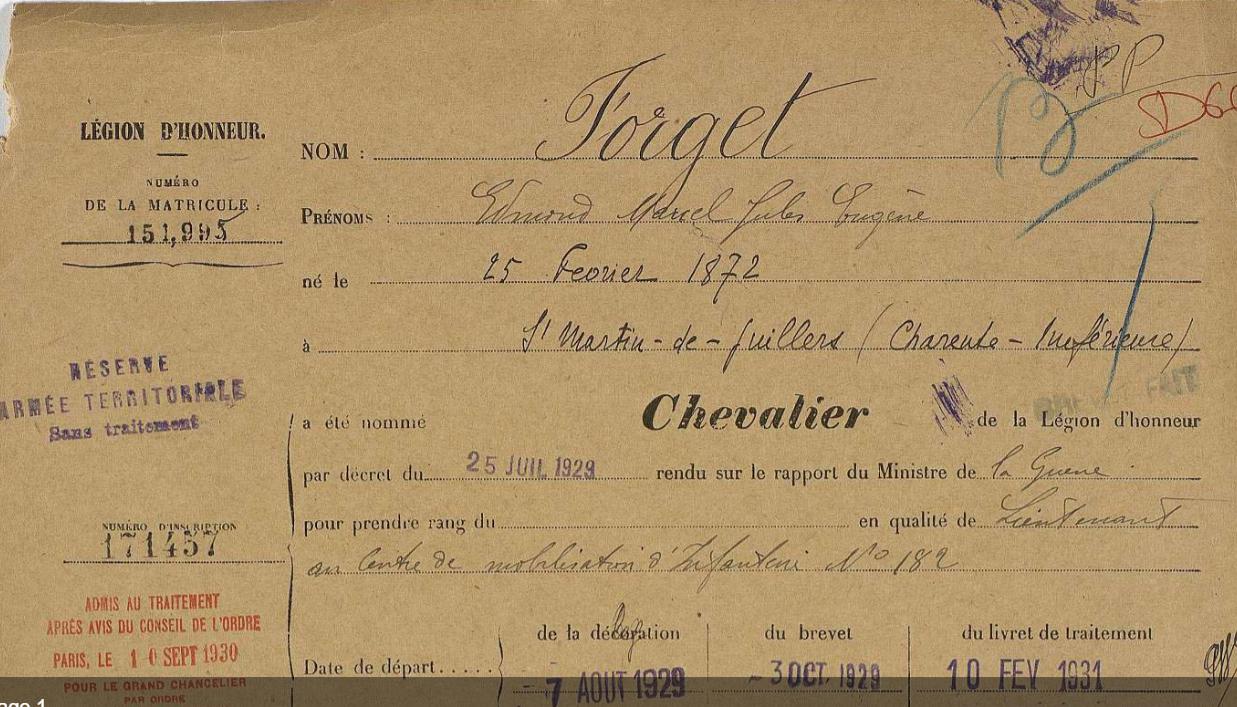 LÉGION D'HONNEUR.
NUMÉRO
DE LA MATRICULE :
151,995
NOM : Forget
PRÉNOMS : Edmond Marcel Jules Eugène
né le 25 Fevrier 1872
à St Martin-de-Juillers (Charente-Inférieure)
RÉSERVE
ARMÉE TERRITORIALE
Sans traitement
a été nommé Chevalier de la Légion d'honneur
par décret du 25 JUIL 1929 rendu sur le rapport du Ministre de la Guerre
pour prendre rang du en qualité de Lieutenant
au Centre de mobilisation d'Infanterie No 182
NUMÉRO D'INSCRIPTION
171457
ADMIS AU TRAITEMENT
APRÈS AVIS DU CONSEIL DE L'ORDRE
PARIS, LE 10 SEPT 1930
POUR LE GRAND CHANCELIER
PAR ORDRE
de la décoration du brevet du livret de traitement
Date de départ..... 7 AOUT 1929 - 3 OCT. 1929 10 FEV 1931